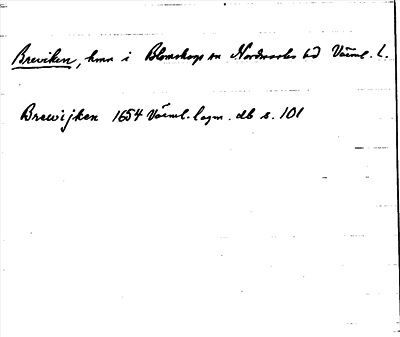 Breviken, hmn i Blomskogs sn Nordmarks hd Värml. l.
Brewijken 1654 Värml. lagm. db s. 101